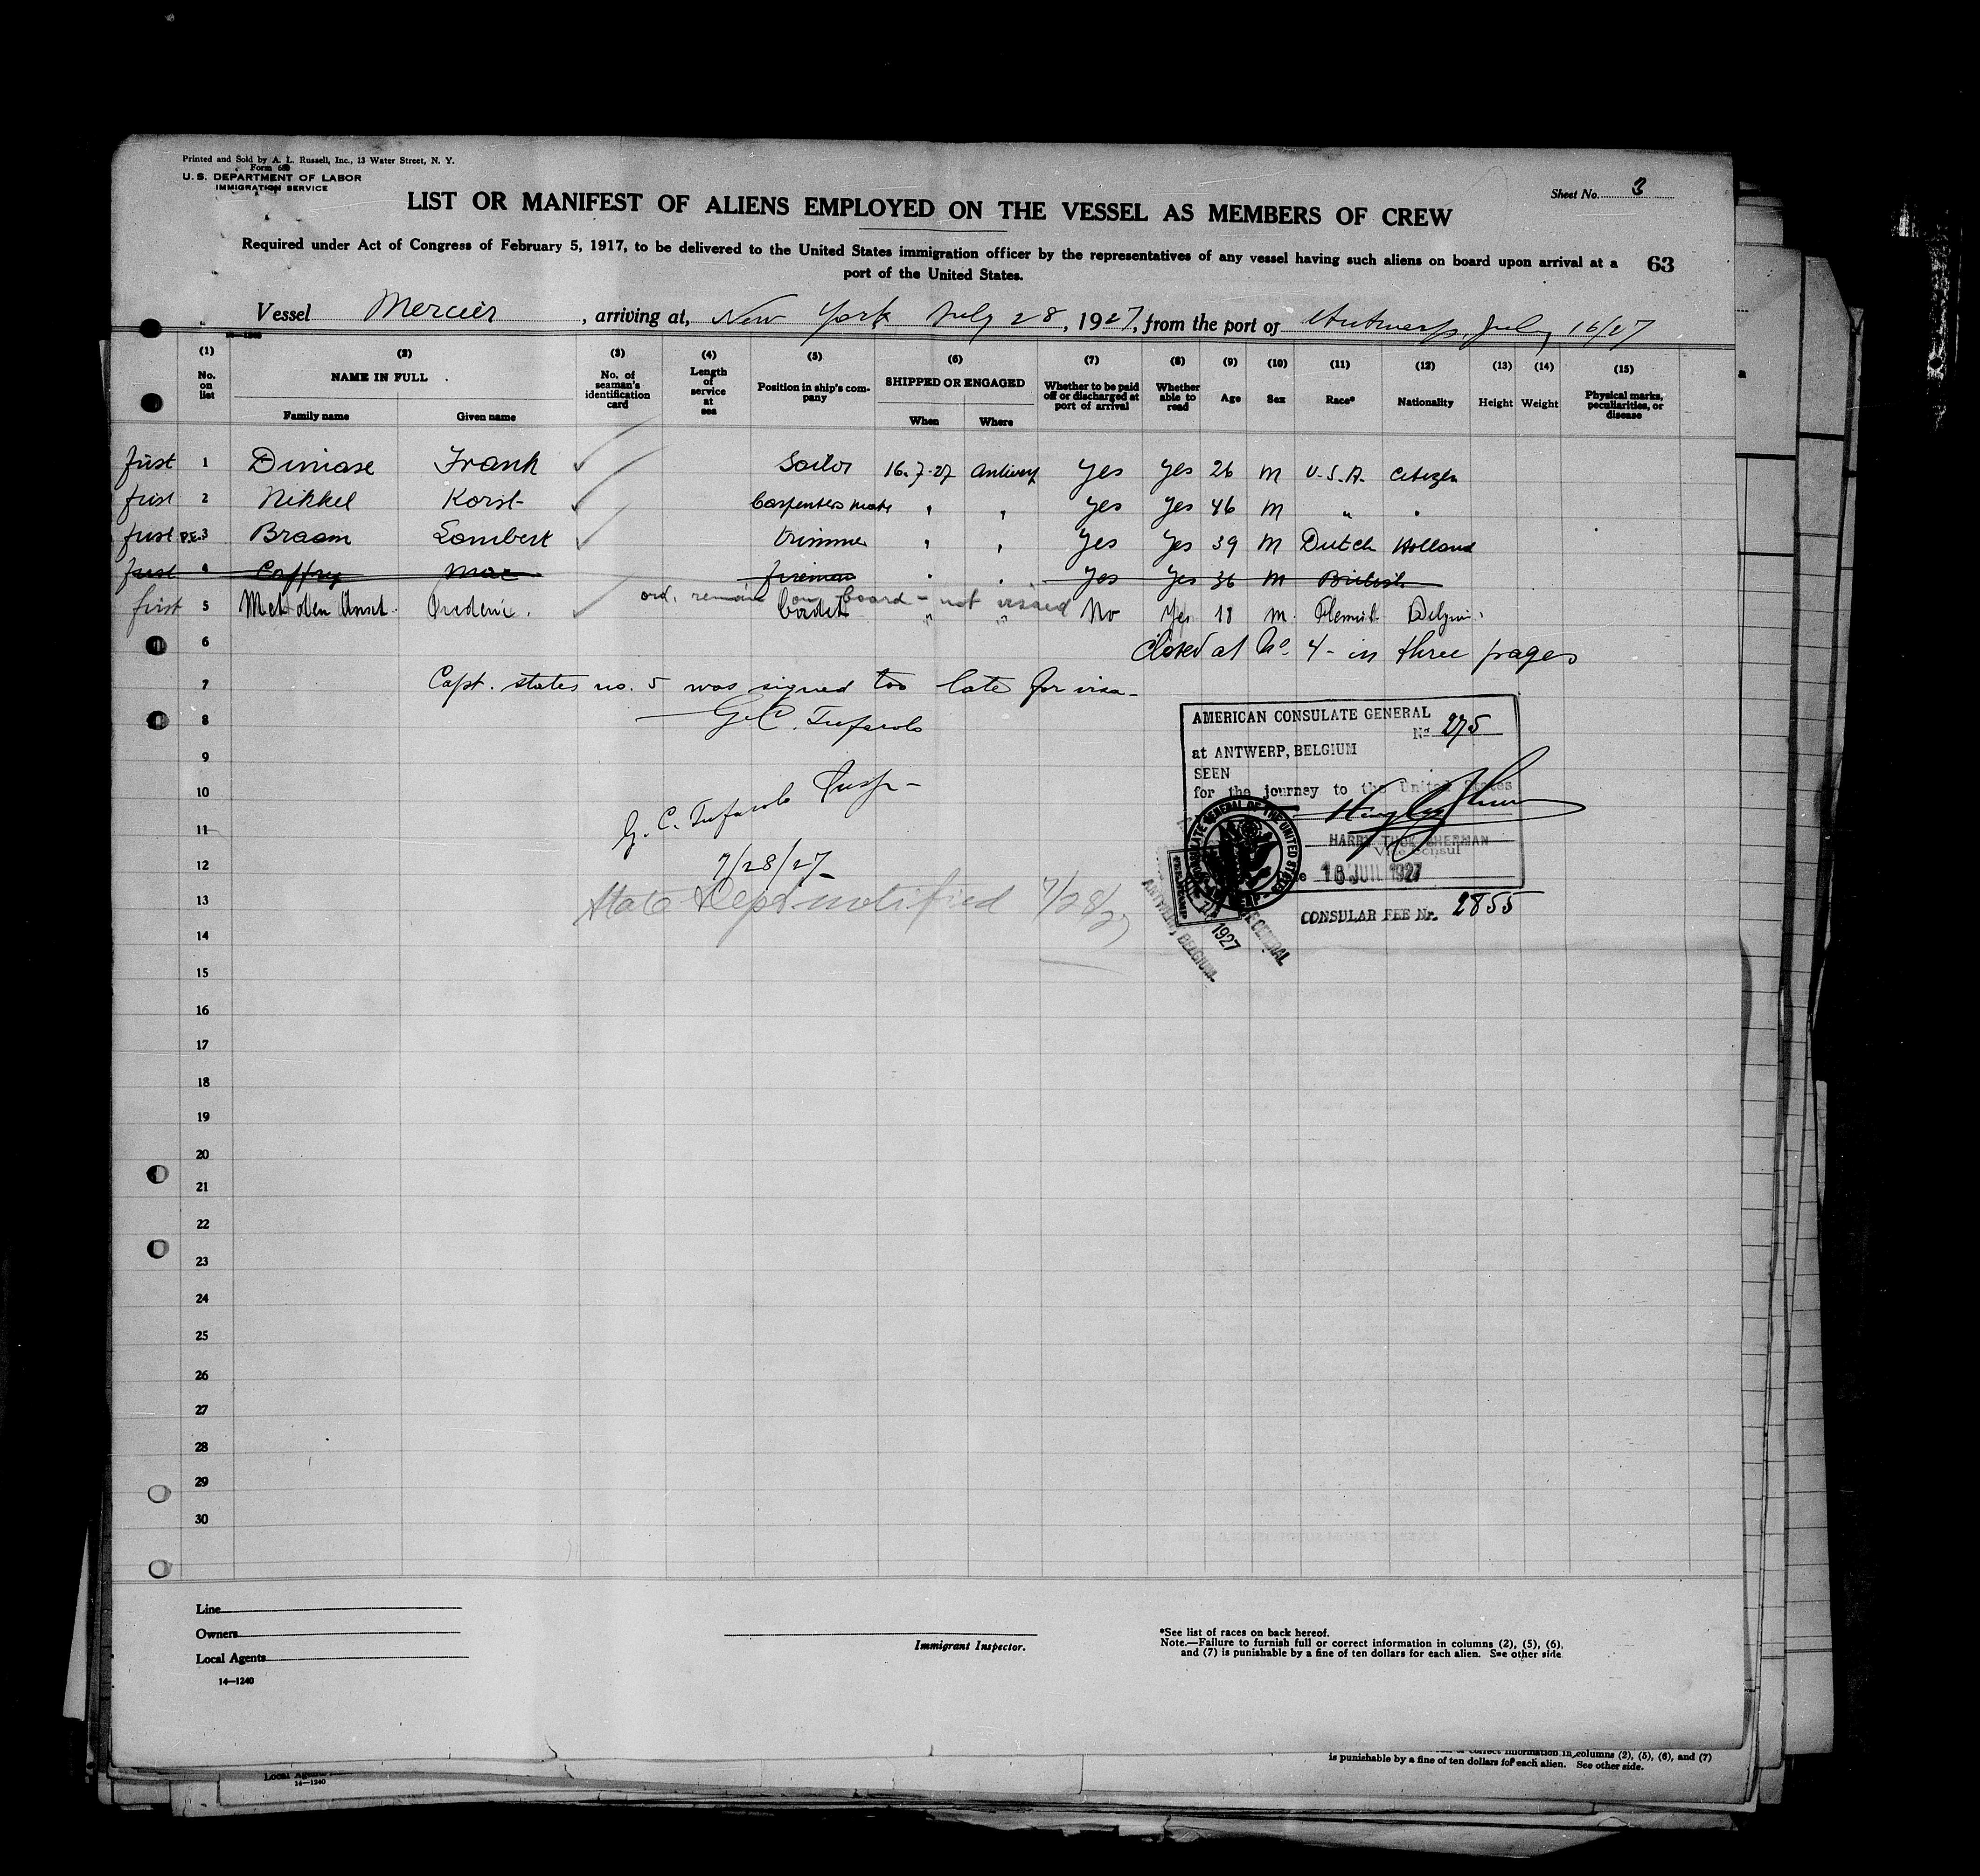 Printed and Sold by A. L. Russell, Inc., 13 Water Street, N. Y.
Form 689
U. S. DEPARTMENT OF LABOR
IMMIGRATION SERVICE
Sheet No. 3
LIST OR MANIFEST OF ALIENS EMPLOYED ON THE VESSEL AS MEMBERS OF CREW
Required under Act of Congress of February 5, 1917, to be delivered to the United States immigration officer by the representatives of any vessel having such aliens on board upon arrival at a
port of the United States.
63
Vessel Mercier, arriving at, New York July 28, 1927, from the port of Antwerp, July 16/27
(1) No. on list
(2) NAME IN FULL Family name Given name
(3) No. of seaman's identification card
(4) Length of service at sea
(5) Position in ship's company
(6) SHIPPED OR ENGAGED When Where
(7) Whether to be paid off or discharged at port of arrival
(8) Whether able to read
(9) Age
(10) Sex
(11) Race*
(12) Nationality
(13) Height
(14) Weight
(15) Physical marks, peculiarities, or disease
first 1 Diniase Frank Sailor 16.7-27 Antwerp Yes Yes 26 M U.S.A. Citizen
first 2 Nikkel Korst Carpenters mate " " Yes Yes 46 M " "
first P.E. 3 Braam Lambert trimmer " " Yes Yes 39 M Dutch Holland
first 4 Caffry Mac fireman " " Yes Yes 36 M British
ord. remain on board - not visaed
first 5 Met den Anxt. Cadet " " No Yes 18 M. Flemish
6 Closed at No. 4 - in three pages
7 Capt. states no. 5 was signed too late for visa-
8 G. C. Tufarolo
9
10 G. C. Tufarolo Insp-
11
12 7/28/27
13 State Dept notified 7/28/27
14
15
16
17
18
19
20
21
22
23
24
25
26
27
28
29
30
AMERICAN CONSULATE GENERAL
No 275
at ANTWERP, BELGIUM
SEEN
for the journey to the United States
HARRY TUCK SHERMAN
Vice Consul
Date 16 JUIL 1927
CONSULAR FEE Nr. 2855
1927
ANTWERP, BELGIUM.
Line
Owners
Local Agents
14—1240
Immigrant Inspector.
*See list of races on back hereof.
Note.—Failure to furnish full or correct information in columns (2), (5), (6),
and (7) is punishable by a fine of ten dollars for each alien. See other side.
correct information in columns (2), (5), (6), and (7)
is punishable by a fine of ten dollars for each alien. See other side.
Local Agents
14—1240